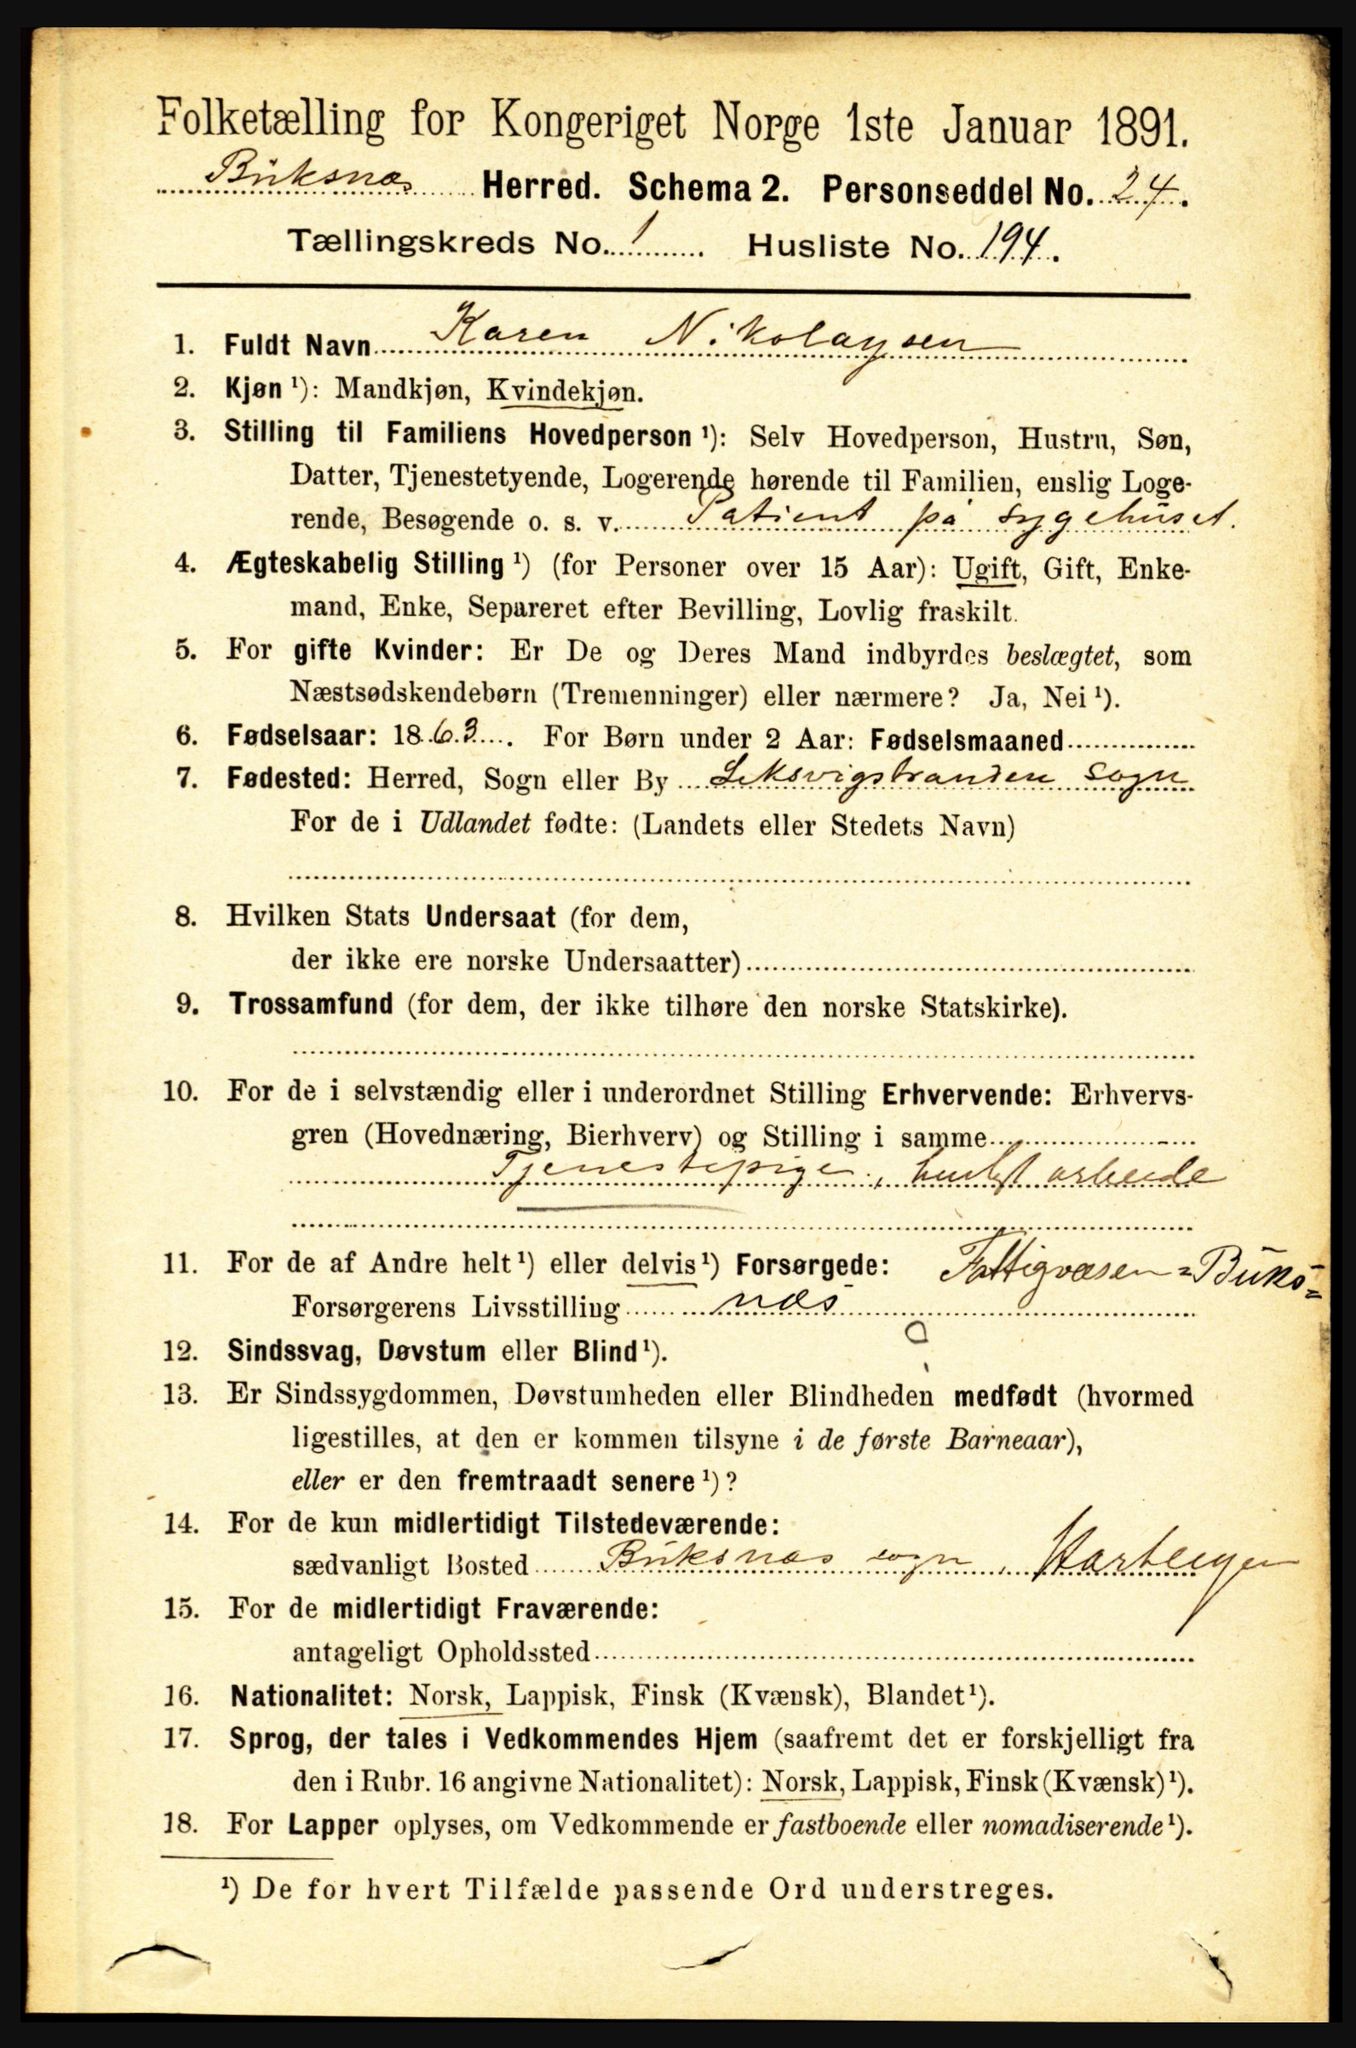 Folketælling for Kongeriget Norge 1ste Januar 1891.
Buksnæs Herred. Schema 2. Personseddel No. 24.
Tællingskreds No. 1 Husliste No. 194.
1. Fuldt Navn Karen Nikolaysen
2. Kjøn ¹): Mandkjøn, Kvindekjøn.
3. Stilling til Familiens Hovedperson ¹): Selv Hovedperson, Hustru, Søn,
Datter, Tjenestetyende, Logerende hørende til Familien, enslig Loge-
rende, Besøgende o. s. v. Patient på sygehuset.
4. Ægteskabelig Stilling ¹) (for Personer over 15 Aar): Ugift, Gift, Enke-
mand, Enke, Separeret efter Bevilling, Lovlig fraskilt.
5. For gifte Kvinder: Er De og Deres Mand indbyrdes beslægtet, som
Næstsødskendebørn (Tremenninger) eller nærmere? Ja, Nei ¹).
6. Fødselsaar: 1863. For Børn under 2 Aar: Fødselsmaaned
7. Fødested: Herred, Sogn eller By Leksvigstranden sogn
For de i Udlandet fødte: (Landets eller Stedets Navn)
8. Hvilken Stats Undersaat (for dem,
der ikke ere norske Undersaatter)
9. Trossamfund (for dem, der ikke tilhøre den norske Statskirke).
10. For de i selvstændig eller i underordnet Stilling Erhvervende: Erhvervs-
gren (Hovednæring, Bierhverv) og Stilling i samme
Tjenestepige, huslgt arbeide
11. For de af Andre helt ¹) eller delvis ¹) Forsørgede: Fattigvæsen = Buks=
Forsørgerens Livsstilling næs
12. Sindssvag, Døvstum eller Blind ¹).
13. Er Sindssygdommen, Døvstumheden eller Blindheden medfødt (hvormed
ligestilles, at den er kommen tilsyne i de første Barneaar),
eller er den fremtraadt senere ¹)?
14. For de kun midlertidigt Tilstedeværende:
sædvanligt Bosted Buksnæs sogn,
15. For de midlertidigt Fraværende:
antageligt Opholdssted
16. Nationalitet: Norsk, Lappisk, Finsk (Kvænsk), Blandet ¹).
17. Sprog, der tales i Vedkommendes Hjem (saafremt det er forskjelligt fra
den i Rubr. 16 angivne Nationalitet): Norsk, Lappisk, Finsk (Kvænsk) ¹).
18. For Lapper oplyses, om Vedkommende er fastboende eller nomadiserende ¹).
¹) De for hvert Tilfælde passende Ord understreges.